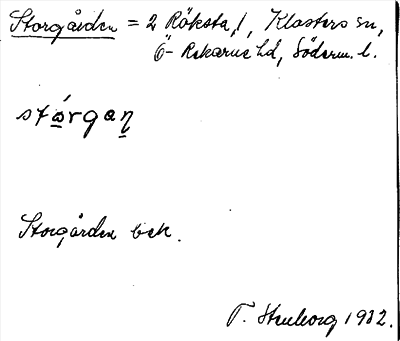 Storgården = 2 Röksta, 1, Klosters sn,
Ö-Rekarne hd, Söderm. l.
stǫ́rgaṇ
Storgården bek.
T. 1932.